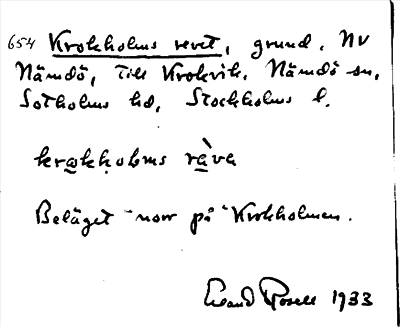 654 Krokholms revet, grund. NV
Nämdö, till Krokvik. Nämdö sn,
Sotholms hd, Stockholms l.
krakholms ràva
Beläget norr på Krokholmen.
Rosell 1933